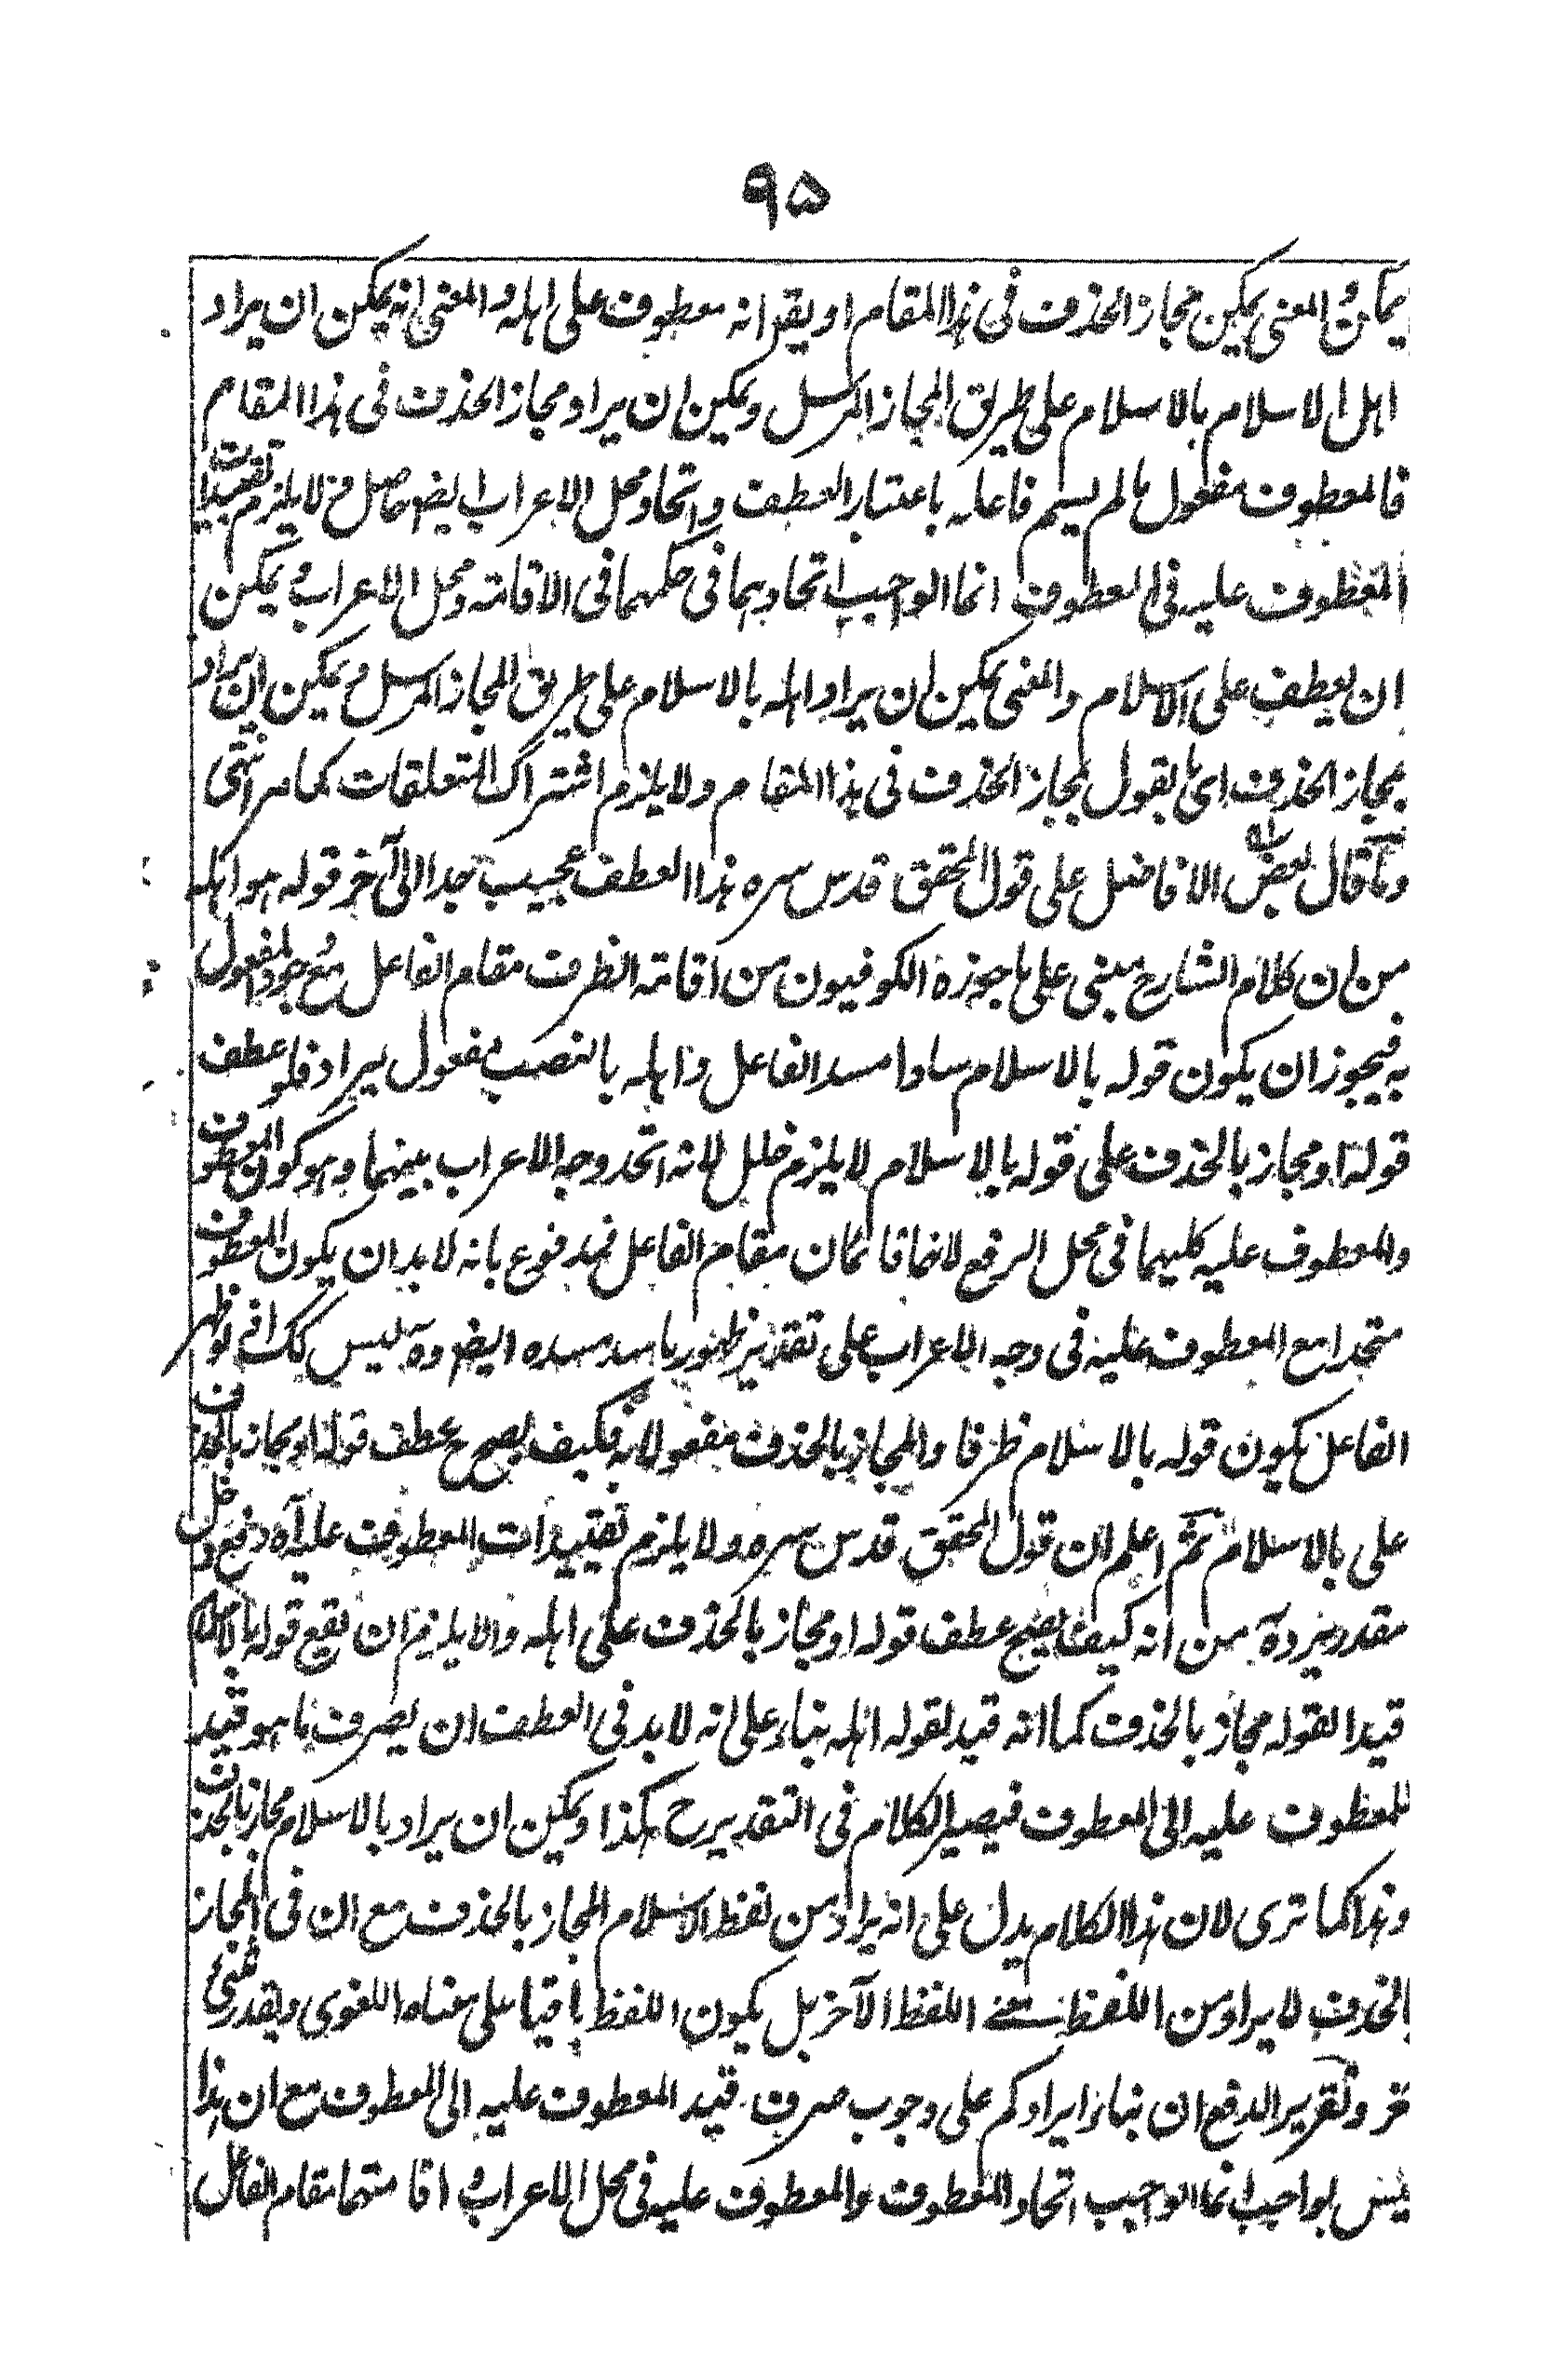 ٩٥
يمكن والمعنى يمكن مجاز الحذف فى هذا المقام او يقر انه معطوف على اهله والمعنى انه يمكن ان يراد
اهل الاسلام بالاسلام على طريق المجاز المرسل ويمكن ان يراد مجاز الحذف فى هذا المقام
فالمعطوف مفعول ما لم يسم فاعله باعتبار العطف واتحاد محل الاعراب ايضا حاصل فح لا يلزم تقييدات
المعطوف عليه فى المعطوف انما الواجب اتحادهما فى حكمهما فى الاقامة ومحل الاعراب ويمكن
ان يعطف على الاسلام والمعنى يمكن ان يراد اهله بالاسلام على طريق المجاز المرسل ويمكن ان يراد
بمجاز الحذف اى بقول مجاز الحذف فى هذا المقام ولا يلزم اشتراك المتعلقات كما مر انتهى
وما قال بعض الافاضل على قول المحقق قدس سره هذا العطف عجيب جدا الى آخر قوله هو اهله
من ان كلام الشارح مبنى على ما جوزه الكوفيون من اقامة الظرف مقام الفاعل مع وجود المفعول
به فيجوز ان يكون قوله بالاسلام سادا مسد الفاعل واهله بالنصب مفعول يراد فلو عطف
قوله او مجاز بالحذف على قوله بالاسلام لا يلزم خلل لانه اتحد وجه الاعراب بينهما وهو كون المعطوف
والمعطوف عليه كليهما فى محل الرفع لانهما قائمان مقام الفاعل فمدفوع بانه لا بد ان يكون المعطوف
متحدا مع المعطوف عليه فى وجه الاعراب على تقدير ظهور ما سد مسده ايضا وهو ليس كك اذ لو ظهر
الفاعل يكون قوله بالاسلام ظرفا والمجاز بالحذف مفعولا به فكيف يصح ح عطف قوله او مجاز بالحذف
على بالاسلام ثم اعلم ان قول المحقق قدس سره ولا يلزم تقييدات المعطوف عليه آه دفع دخل
مقدر من انه كيف يصح عطف قوله او مجاز بالحذف على اهله والا يلزم ان يقع قوله بالاسلام
قيدا لقوله مجاز بالحذف كما انه قيد لقوله اهله بناء على انه لا بد فى العطف ان يصرف ما هو قيد
للمعطوف عليه الى المعطوف فيصير الكلام فى التقدير ح هكذا ويمكن ان يراد بالاسلام مجاز بالحذف
وهذا كما ترى لان هذا الكلام يدل على انه يراد من لفظ الاسلام المجاز بالحذف مع ان فى المجاز
بالحذف لا يراد من اللفظ معنى اللفظ الآخر بل يكون اللفظ باقيا على معناه اللغوى ويقدر شئ
وتقرير الدفع ان بناء ايرادكم على وجوب صرف قيد المعطوف عليه الى المعطوف مع ان هذا
ليس بواجب انما الواجب اتحاد المعطوف والمعطوف عليه فى محل الاعراب واقامتهما مقام الفاعل